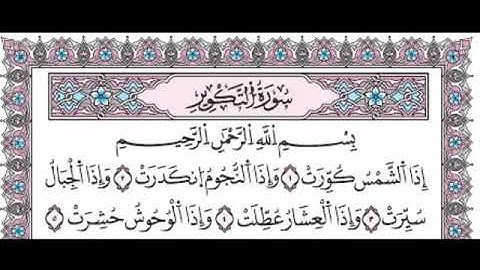 سُورَةُ التَّكْوِيرِ
بِسْمِ اللَّهِ الرَّحْمَٰنِ الرَّحِيمِ
إِذَا الشَّمْسُ كُوِّرَتْ ١ وَإِذَا النُّجُومُ انكَدَرَتْ ٢ وَإِذَا الْجِبَالُ
سُيِّرَتْ ٣ وَإِذَا الْعِشَارُ عُطِّلَتْ ٤ وَإِذَا الْوُحُوشُ حُشِرَتْ ٥